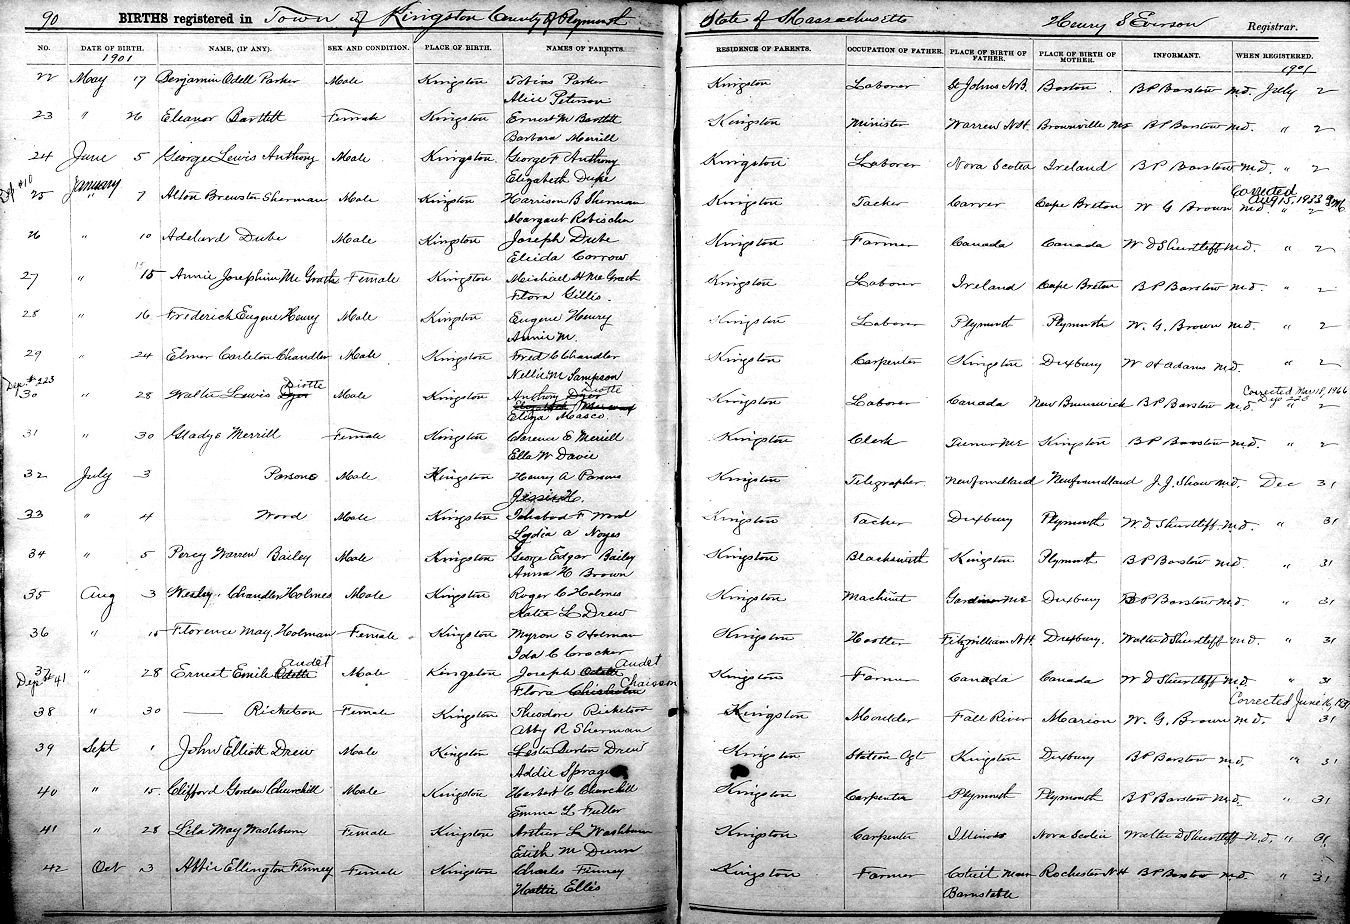 90 BIRTHS registered in Town of Kingston County of Plymouth State of Massachusetts Henry S Everson Registrar.
NO. DATE OF BIRTH. NAME, (IF ANY). SEX AND CONDITION. PLACE OF BIRTH. NAMES OF PARENTS. RESIDENCE OF PARENTS. OCCUPATION OF FATHER. PLACE OF BIRTH OF FATHER. PLACE OF BIRTH OF MOTHER. INFORMANT. WHEN REGISTERED.
1901 1901
22 May 17 Benjamin Odell Parker Male Kingston Tobias Parker Kingston Laborer St Johns N.B. Boston B P Barstow M.D. July 2
Alice Peterson
23 " 26 Eleanor Bartlett Female Kingston Ernest M Bartlett Kingston Minister Warren N.H. Brownville Me B P Barstow M.D. " 2
Barbara Merrill
24 June 5 George Lewis Anthony Male Kingston George F Anthony Kingston Laborer Nova Scotia Ireland B P Barstow M.D. " 2
Elizabeth Dupe
January
Corrected Aug 15, 1923
25 " 7 Alton Brewster Sherman Male Kingston Harrison B Sherman Kingston Tacker Carver Cape Breton W G Brown M.D. " 2
Margaret
26 " 10 Adelard Dube Male Kingston Joseph Dube Kingston Farmer Canada Canada W D Shurtleff M.D. " 2
Eleida Corrow
27 " 15 Annie Josephine Mc Grath Female Kingston Michael H Mc Grath Kingston Laborer Ireland Cape Breton B P Barstow M.D. " 2
Flora Gillis.
28 " 16 Frederich Eugene Henry Male Kingston Eugene Henry Kingston Laborer Plymouth Plymouth W. G. Brown M.D. " 2
Annie M.
29 " 24 Elmer Carleton Chandler Male Kingston Fred C Chandler Kingston Carpenter Kingston Duxbury W H Adams M.D. " 2
Nellie M Sampson
Dep # 223 Diotte Diotte Corrected Mar 18, 1966
30 " 28 Walter Lewis Dyer Male Kingston Anthony Dyer Kingston Laborer Canada New Brunswick B P Barstow M.D. " 2
Eliza Masco
31 " 30 Gladys Merrill Female Kingston Clarence E Merrill Kingston Clerk Turner Me Kingston B P Barstow M.D. " 2
Ella W Davie
32 July 3 Parsons Male Kingston Henry A Parsons Kingston Telegrapher Newfoundland Newfoundland J. J. Shaw M.D. Dec 31
Jessie H.
33 " 4 Wood Male Kingston Ichabod F Wood Kingston Tacker Duxbury Plymouth W. D Shurtleff M.D. " 31
Lydia A Noyes
34 " 5 Percy Warren Bailey Male Kingston George Edgar Bailey Kingston Blacksmith Kingston Plymouth B P Barstow M.D. " 31
Anna H Brown
35 Aug 3 Wesley Chandler Holmes Male Kingston Roger C Holmes Kingston Machinist Gardiner Me Duxbury B P Barstow M.D. " 31
Katie L Drew
36 " 15 Florence May Holman Female Kingston Myron S Holman Kingston Hostler Fitzwilliam N.H. Duxbury. Walter D Shurtleff M.D. " 31
Ida C Crocker
Audet Audet
37 " 28 Ernest Emile Odette Male Kingston Joseph Odette Kingston Farmer Canada Canada W D Shurtleff M.D. " 31
Dep # 41 Flora Chisholm Chaisson
Corrected June 16,
38 " 30 —— Ricketson Female Kingston Theodore Ricketson Kingston Moulder Fall River Marion W. G. Brown M.D. " 31
Abby R Sherman
39 Sept 1 John Elliott Drew Male Kingston Lester Burton Drew Kingston Station Agt Kingston Duxbury B P Barstow M.D. " 31
Addie Sprague
40 " 15 Clifford Gordon Churchill Male Kingston Herbert C Churchill Kingston Carpenter Plymouth Plymouth B P Barstow M.D. " 31
Emma L Fuller
41 " 28 Lila May Washburn Female Kingston Arthur L Washburn Kingston Carpenter Illinois Nova Scotia Walter D Shurtleff M.D. " 31
Edith M Dunn
42 Oct 3 Abbie Ellington Finney Female Kingston Charles Finney Kingston Farmer Cotuit Mass Rochester N H B P Barstow M.D. " 31
Hattie Ellis Barnstable